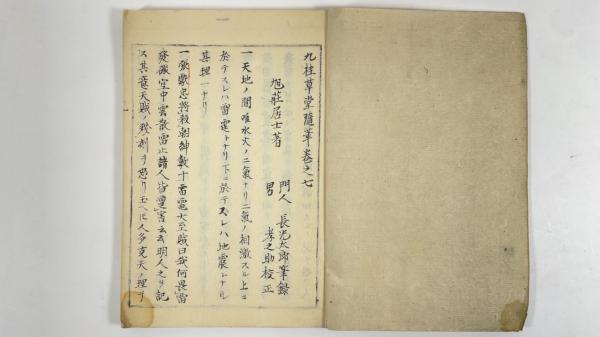 九桂草堂随筆巻之七
旭荘居士著
門人 長光太郎筆録
男 孝之助校正
一天地ノ間唯水火ノ二氣ナリ二氣ノ相激スル上ニ
於テスレハ雷霆トナリ下ニ於テスレハ地震トナル
其理一ナリ
一張獻忠將殺朝紳數十雷電大至賊曰我何畏雷
發礟空中雲散雷止諸人皆害云云明人之ヲ記
ス其意天賊ノ
ヲ怒リ玉ヘ𪜈人多克天ノ理ヲ